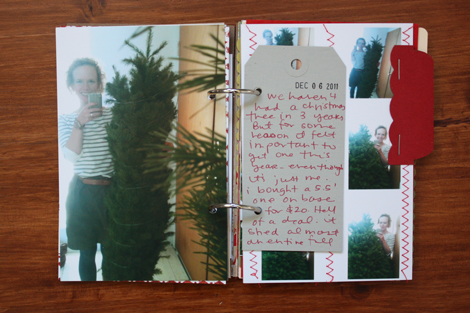 DEC 06 2011
we haven't
had a christmas
tree in 3 years.
But for some
reason it felt
important to
get one this
year.. even though
it's just me.
i bought a 5.5'
one on base
for $20. Hell
of a deal. it
shed almost
an entire tree